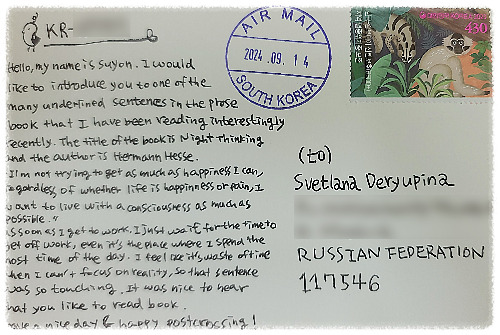 KR-
Hello, my name is suyon. I would
like to introduce you to one of the
many underlined sentences in the prose
book that I have been reading interestingly
recently. The title of the book is Night Thinking
and the author is Hermann Hesse.
"I'm not trying to get as much as happiness I can,
regardless of whether life is happinness or pain, I
want to live with a consciousness as much as
possible."
As soon as I get to work. I just wait for the time to
get off work, even it's the place where I spend the
most time of the day. I feel like it's waste of time
when I can't focus on reality, so that sentence
was so touching. It was nice to hear
that you like to read book.
Have a nice day & happy postcrossing!
AIR MAIL
2024.09.14
SOUTH KOREA
430
(to)
Svetlana Deryupina
RUSSIAN FEDERATION
117546